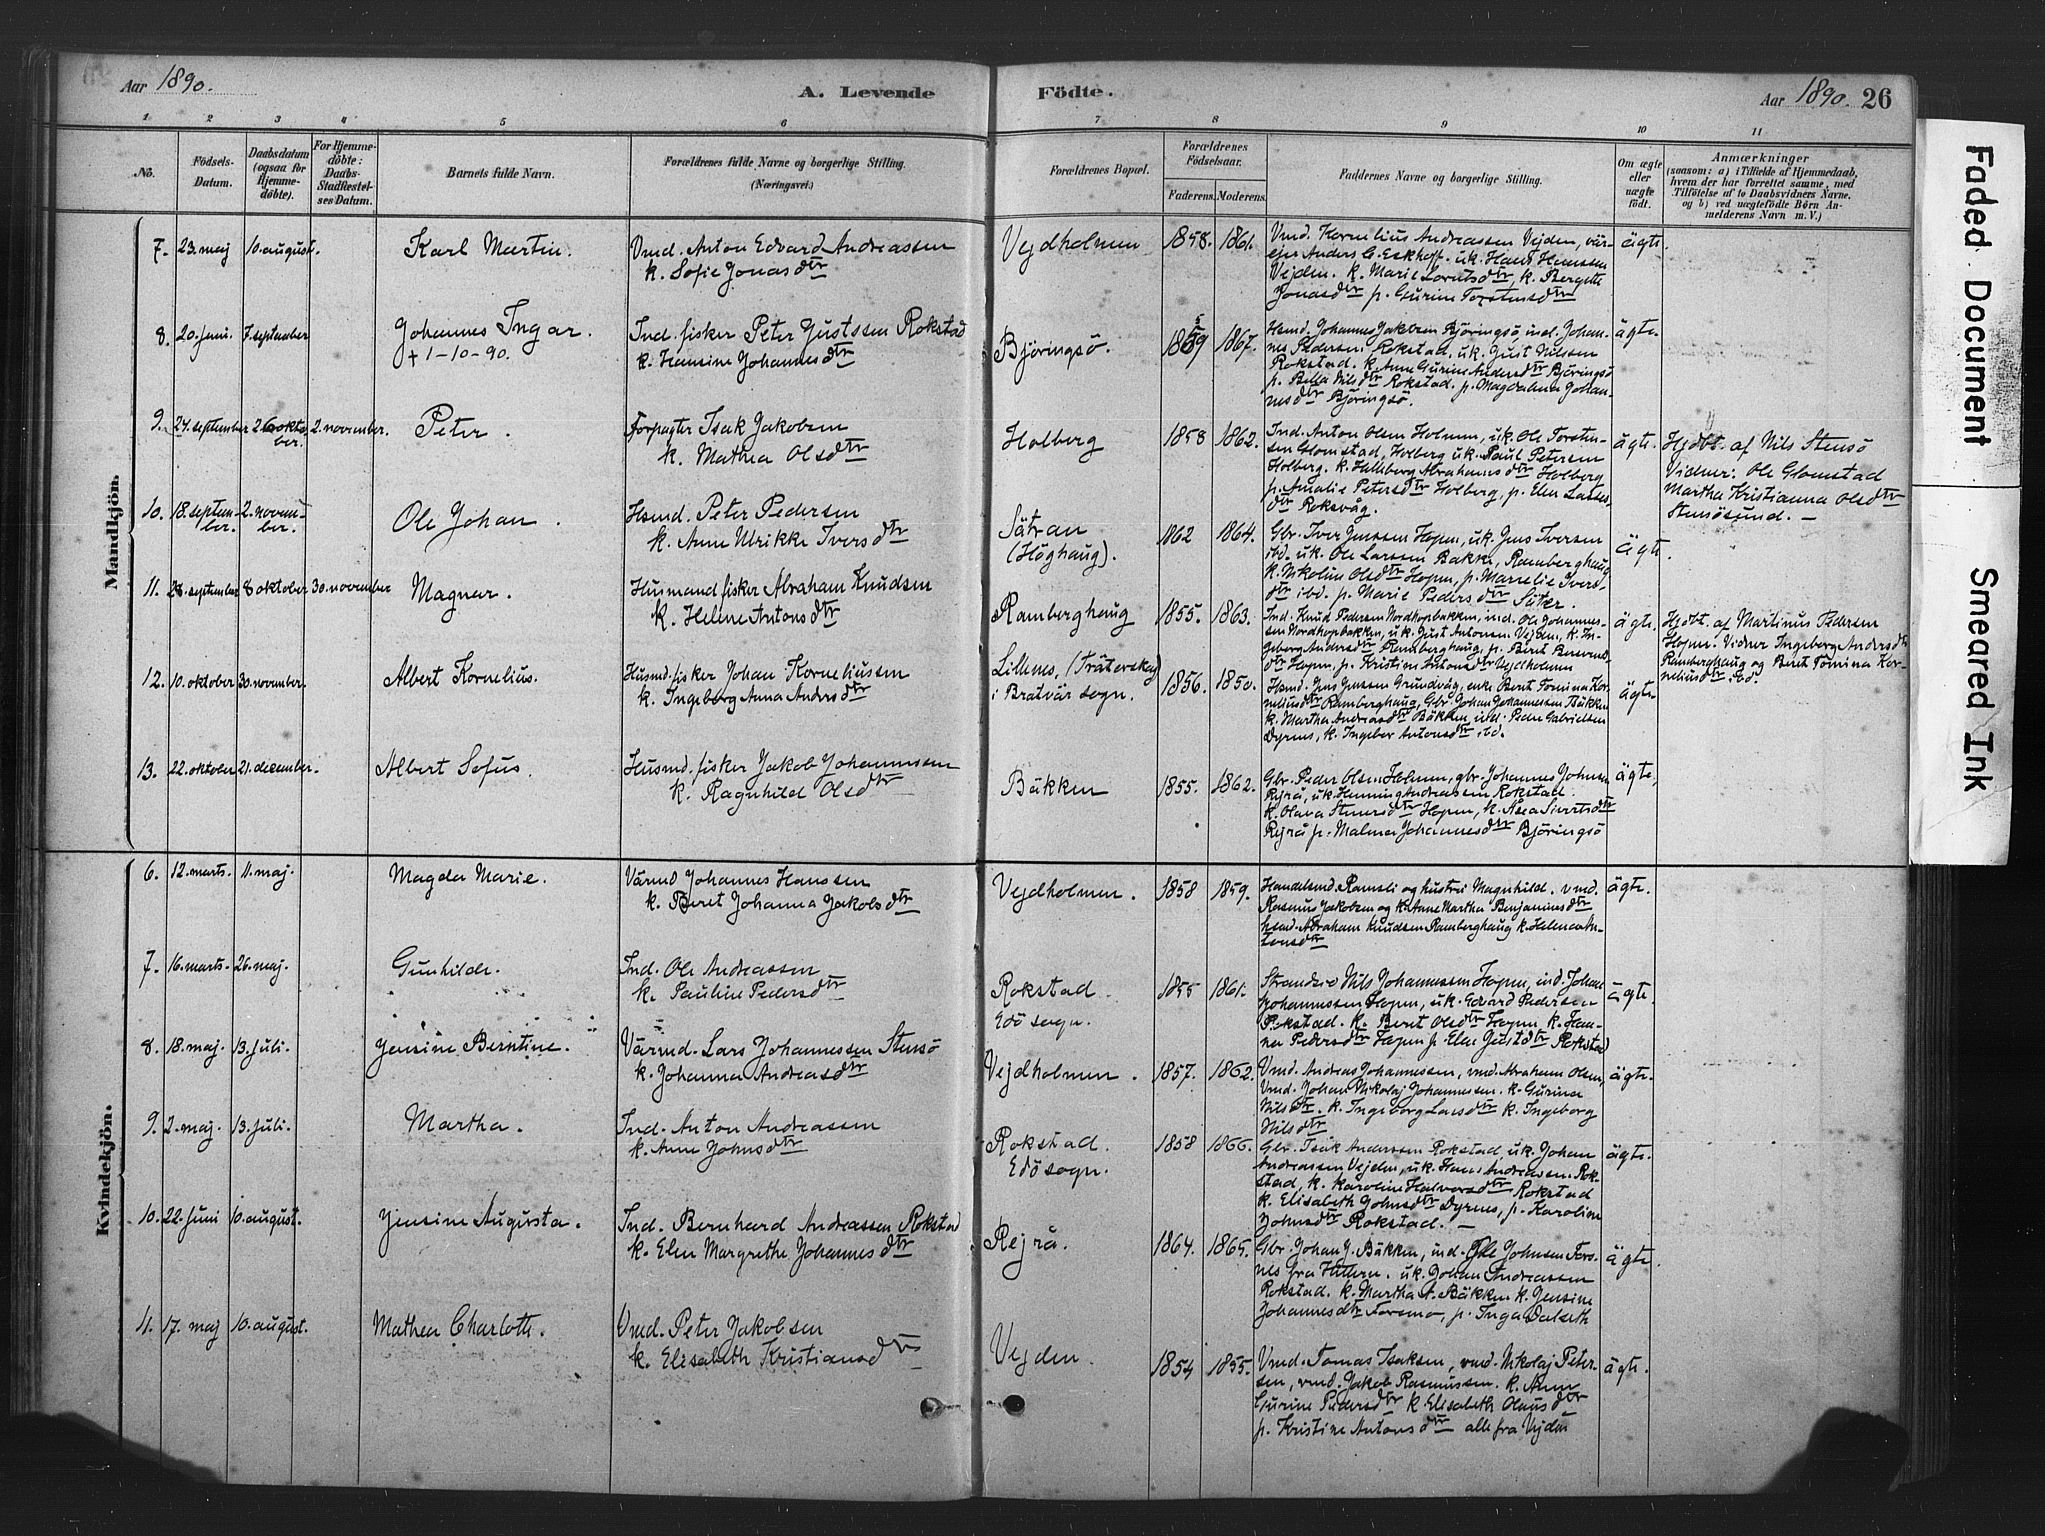 Aar 1890.
A. Levende Födte.
Aar 1890. 26
1 2 3 4 5 6 7 8 9 10 11
No.
Födsels-Datum.
Daabsdatum (ogsaa for Hjemme-döbte).
For Hjemme-döbte: Daabs-Stadfæstel-ses Datum.
Barnets fulde Navn.
Forældrenes fulde Navne og borgerlige Stilling.
(Næringsvei.)
Forældrenes Bopæl.
Forældrenes Födselsaar.
Faderens. Moderens.
Faddernes Navne og borgerlige Stilling.
Om ægte eller uægte födt.
Anmærkninger
(saasom: a) i Tilfælde af Hjemmedaab, hvem der har forrettet samme, med Tilföielse af to Daabsvidners Navne, og b) ved uægtefödte Börn An-melderens Navn m. V.)
Mandkjön.
7. 23. maj 10. august. Karl Martin. Vmd. Anton Edvard Andreassen
k. Sofie Jonasdtr
Vejdholmen 1858. 1861. Vmd. Kornelius Andreassen Vejden, vär-
ejer Anders C. Eskhoff. uk. Hans Hanssen
Vejden. k. Marie Lorntsdtr, k. Bergitte
Jonasdtr p. Gurine Torstensdtr
ägte.
8. 20. juni. 7. september Johannes Ingar.
+ 1-10-90.
Ind. fisker Peter Gustssen Rokstad
k. Hansine Johannesdtr
Björingsö. 1859 1867. Hsmd. Johannes Jakobsen Björingsö, ind. Johan-
nes Pedersen Rokstad, uk. Gust Nilssen
Rokstad. k. Anne Gurine Andersdtr Björingsö
p. Bella Nilsdtr Rokstad. p. Magdalena Johan-
nesdtr Björingsö.
ägte.
9. 24. september 26 okto-
ber. 2. november. Peter. Forpagter Isak Jakobsen
k. Mathea Olsdtr
Holberg 1858 1862. Ind. Anton Olsen Holmen, uk. Ole Torsten-
sen Glomstad, Holberg uk. Paul Petersen
Holberg. k. Halleberg Abrahamsdtr Holberg
p. Amalie Petersdtr Holberg, p. Elen Lasses-
dtr Roksvåg.
ägte. Hjdbt. af Nils Stensö
Vidner: Ole Glomstad
Martha Kristianna Olsdtr
Stensösund. —
10. 18. septem-
ber. 2. novem-
ber. Ole Johan. Hsmd. Peter Pedersen
k. Anne Ulrikke Iversdtr
Sätran
(Höghaug). 1862 1864. Gbr. Iver Jenssen Hopen, uk. Jens Iversen
ibd. uk. Ole Larssen Bakke, Ramberghaug
k. Nikoline Olsdtr Hopen, p. Marselie Ivers-
dtr ibd. p. Marie Pedersdtr Säter.
ägte.
11. 28. september 8 oktober 30. november Magnar. Husmand fisker Abraham Knudsen
k. Helene Antonsdtr
Ramberghaug 1855. 1863. Ind. Knud Pedersen Nordhopbakken, ind. Ole Johannes-
sen Nordhopbakken, uk. Gust Antonsen Vejden, k. In-
geborg Andersdtr Ramberghaug, p. Berit
dtr Hopen, p. Kristien Antonsdtr Vejdholmen
ägte. Hjdbt. af Martinus Pedersen
Hopen. Vidner Ingeberg Andersdtr
Ramberghaug og Berit Tomina Kor-
neliusdtr ibd.
12. 10. oktober 30. november. Albert Kornelius. Husmd. fisker Johan Korneliussen
k. Ingeborg Anna Andersdtr
Lillenes, (Träterskag)
i Bratvär sogn. 1856. 1850. Hsmd. Jens Jenssen Grundvåg, enke Berit Tomina Kor-
neliusdtr Ramberghaug, Gbr. Johan Johannessen Bäkken
k. Martha Andreasdtr Bäkken, ind. Peder Gabrielsen
Dyrnes, k. Ingeber Antonsdtr ibd.
ägte.
13. 22. oktober 21. december. Albert Sofus. Husmd. fisker Jakob Johannessen
k. Ragnhild Olsdtr
Bäkken 1855. 1862. Gbr. Peder Olsen Holmen, gbr. Johannes Johnsen
Rejrå, uk. Henning Andreassen Rokstad.
k. Olava Stenersdtr Hopen, k. Åsea Sivertsdtr
Rejrå p. Malena Johannesdtr Björingsö
ägte.
Kvindekjön.
6. 12. marts. 11. maj. Magda Marie. Värmd Johannes Hanssen
k. Beret Johanna Jakobsdtr
Vejdholmen. 1858 1859. Handelsmd. Ramsli og hustru Magnhild. vmd.
Rasmus Jakobsen og k. Anne Martha Benjaminsdtr
hsmd. Abraham Knudsen Ramberghaug k. Helene An-
tonsdtr
ägte.
7. 16. marts. 26. maj. Gunhilde. Ind. Ole Andreassen
k. Pauline Pedersdtr
Rokstad.
Edö sogn. 1855 1861. Nils Johannessen Hopen, ind. Johan
Johannessen Hopen, uk. Edvard Pedersen
Rokstad. k. Beret Olsdtr Hopen k. Han-
na Pedersdtr Hopen p. Elen Gustsdtr Rokstad
ägte.
8. 18. maj. 13. juli. Jensine Berntine. Värmd. Lars Johannessen Stensö
k. Johanna Andreasdtr
Vejdholmen. 1857. 1862. Vmd. Andreas Johannessen, vmd. Abraham Olsen,
Vmd. Johan Nikolaj Johannessen. k. Gurina
Nilsdtr. k. Ingeborg Larsdtr k. Ingeborg
Nilsdtr
ägte.
9. 2. maj. 13. juli. Martha. Ind. Anton Andreassen
k. Anne Johnsdtr
Rokstad.
Edö sogn. 1858 1866. Gbr. Isak Anderssen Rokstad, uk. Johan
Andreassen Vejden, uk. Hans Andreassen Rok-
stad, k. Karoline Halvorsdtr Rokstad
k. Elisabeth Johnsdtr Dyrnes, p. Karoline
Johnsdtr Rokstad. —
ägte.
10. 22. juni 10. august. Jensine Augusta. Ind. Bernhard Andreassen Rokstad
k. Elen Margrethe Johannesdtr
Rejrå. 1864. 1865. Gbr. Johan J. Bäkken, ind. Ole Johnsen Fors-
nes fra Hitteren. uk. Johan Andreassen
Rokstad. k. Martha A. Bäkken k. Jensine
Johannesdtr Forsmo, p. Inga Dalseth
ägte.
11. 17. maj 10. august. Mathea Charlotte. Vmd. Peter Jakobsen
k. Elisabeth Kristiansdtr
Vejden. 1854 1855. Vmd. Tomas Isaksen, vmd. Nikolaj Peter-
sen, vmd. Jakob Rasmussen. k. Anne
Gurine Pedersdtr k Elisabeth Olausdtr
p. Kristine Antonsdtr alle fra Vejden
ägte.
Faded Document
Smeared Ink